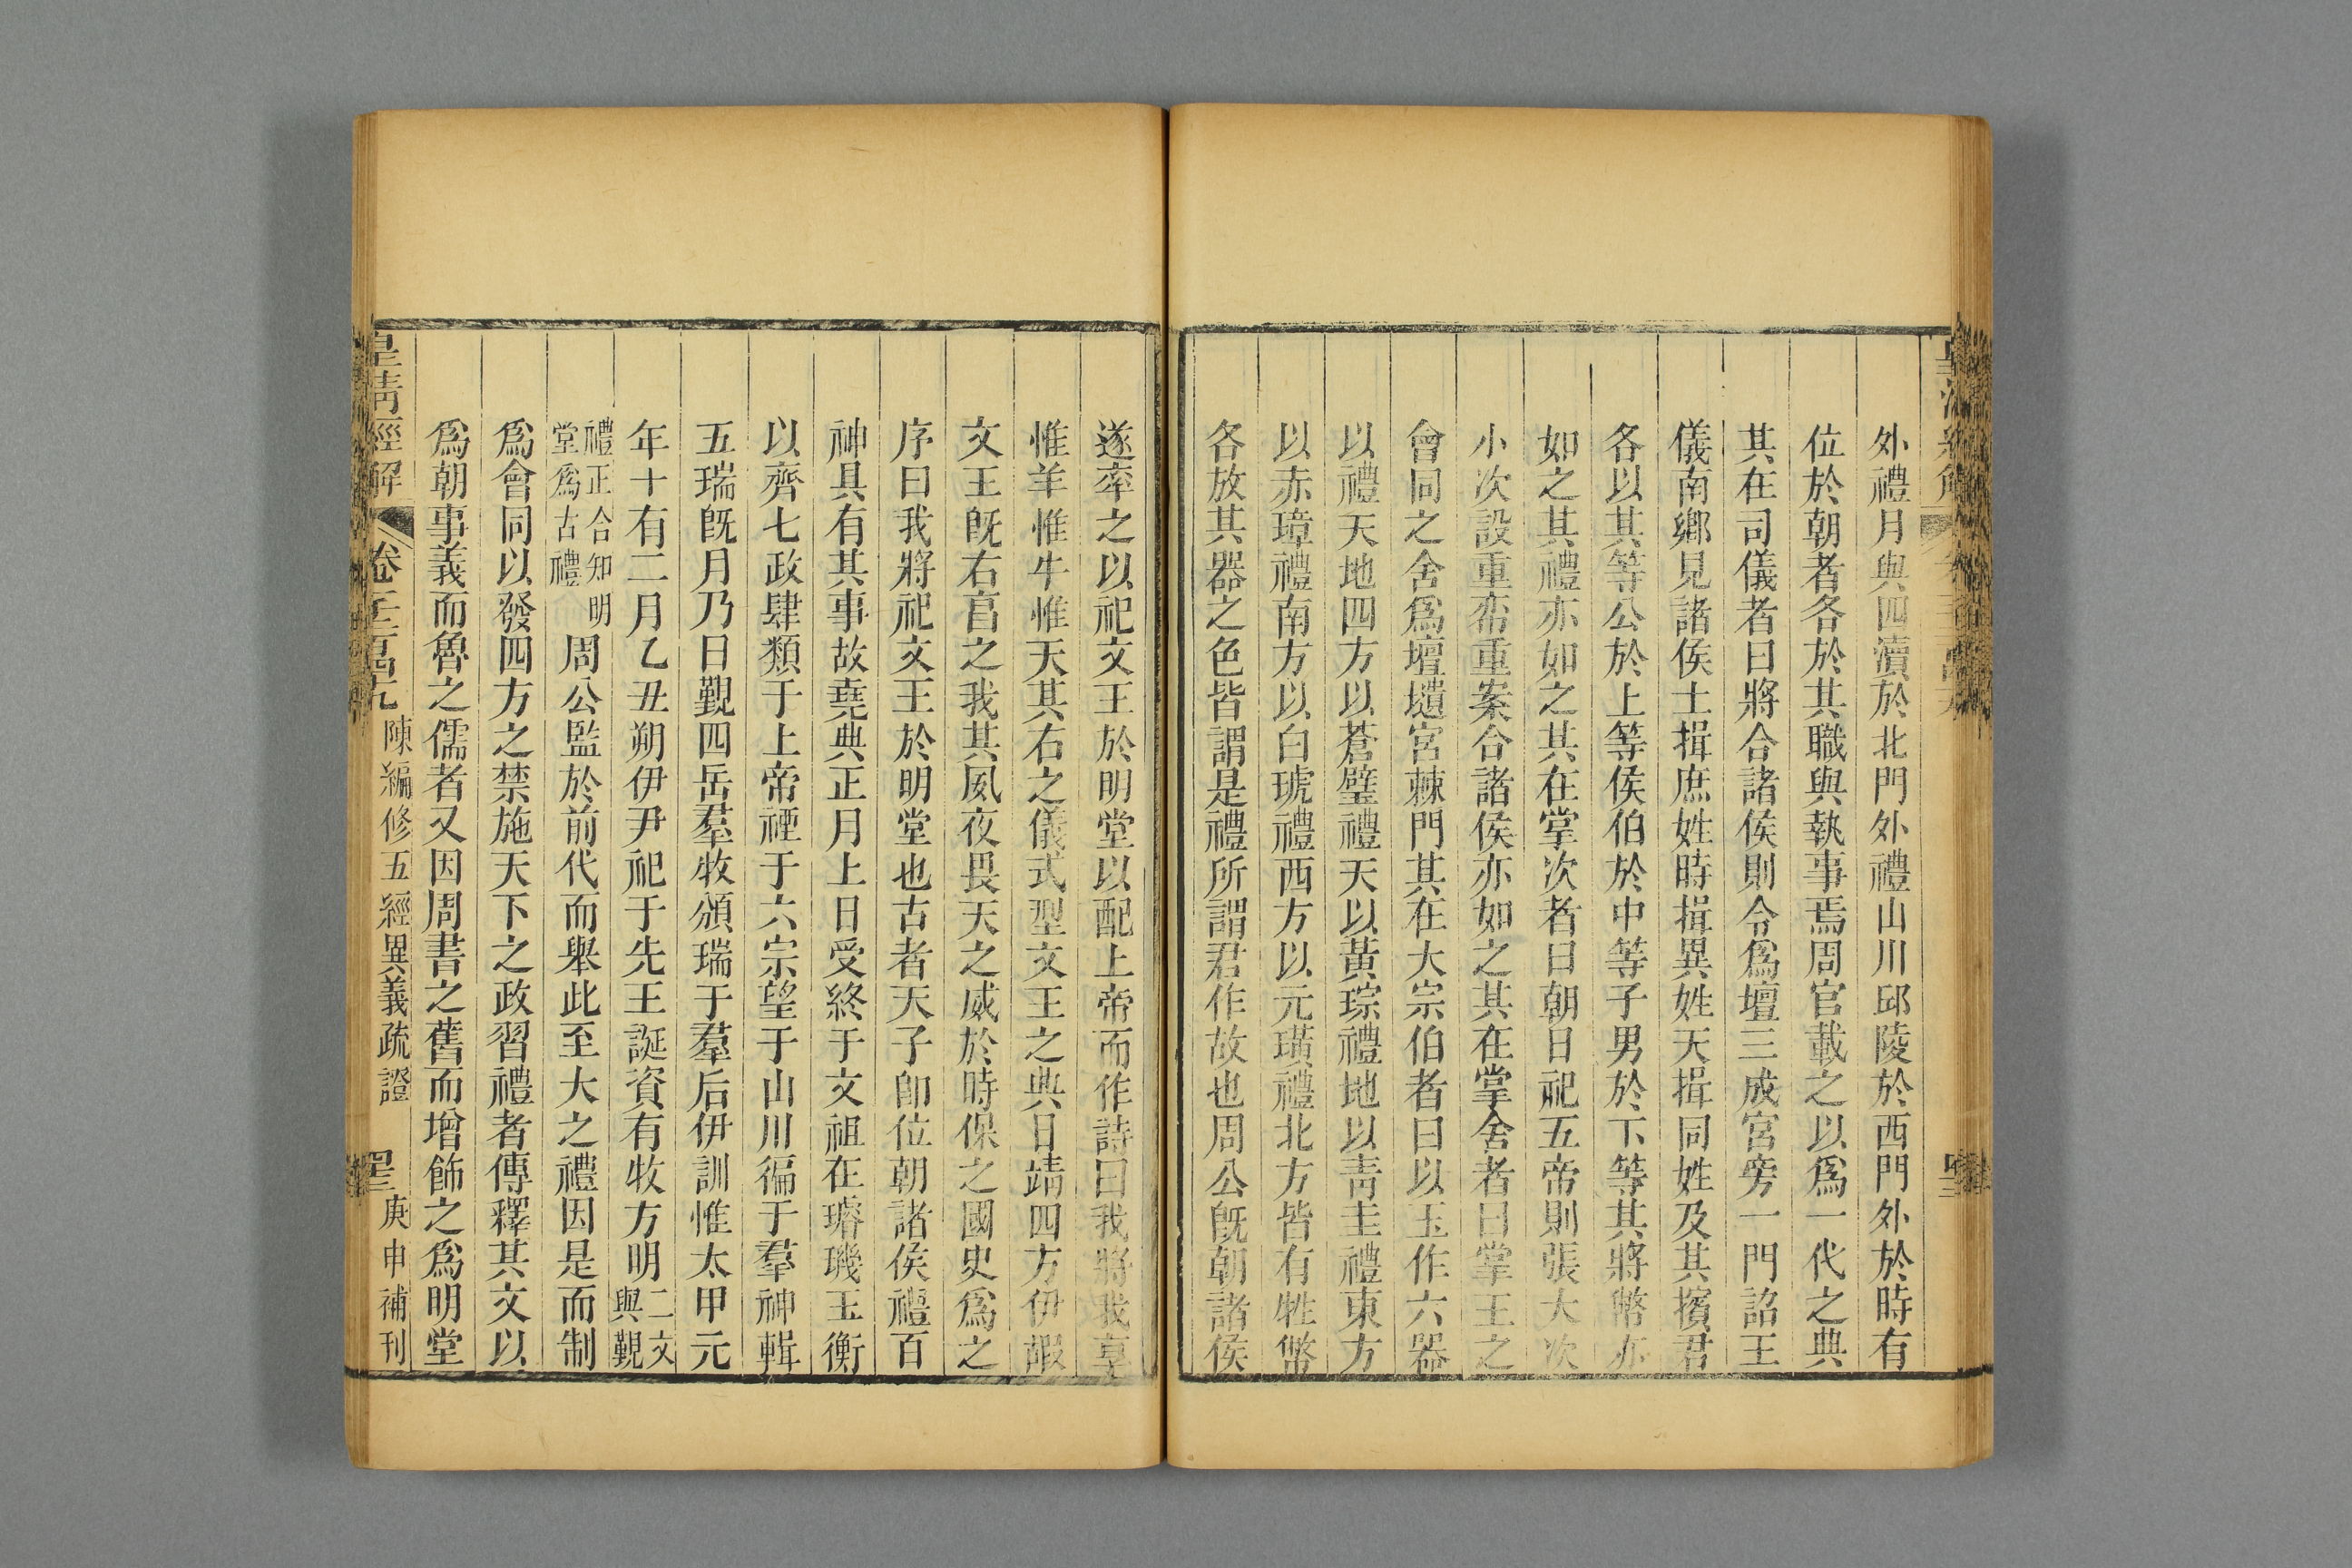 外禮月與四瀆於北門外禮山川邱陵於西門外於時有
位於朝者各於其職與執事焉周官載之以爲一代之典
其在司儀者曰將合諸侯則令爲壇三成宮旁一門詔王
儀南鄉見諸侯土揖庶姓時揖異姓天揖同姓及其擯君
各以其等公於上等侯伯於中等子男於下等其將幣亦
如之其禮亦如之其在掌次者曰朝日祀五帝則張大次
小次設重帟重案合諸侯亦如之其在掌舍者曰掌王之
會同之舍爲壇壝宮棘門其在大宗伯者曰以玉作六器
以禮天地四方以蒼璧禮天以黃琮禮地以靑圭禮東方
以赤璋禮南方以白琥禮西方以元璜禮北方皆有牲幣
各放其器之色皆謂是禮所謂君作故也周公旣朝諸侯
遂率之以祀文王於明堂以配上帝而作詩曰我將我享
惟羊惟牛惟天其右之儀式型文王之典日靖四方伊嘏
文王旣右亯之我其夙夜畏天之威於時保之國史爲之
序曰我將祀文王於明堂也古者天子卽位朝諸侯禮百
神具有其事故堯典正月上日受終于文祖在璿璣玉衡
以齊七政肆類于上帝禋于六宗望于山川徧于羣神輯
五瑞旣月乃日覲四岳羣牧頒瑞于羣后伊訓惟太甲元
年十有二月乙丑朔伊尹祀于先王誕資有牧方明二文與覲
禮正合知明堂爲古禮周公監於前代而舉此至大之禮因是而制
爲會同以發四方之禁施天下之政習禮者傳釋其文以
爲朝事義而魯之儒者又因周書之舊而增飾之爲明堂
皇淸經解 卷千二百四九 陳編修五經異義疏證 四三 庚申補刊